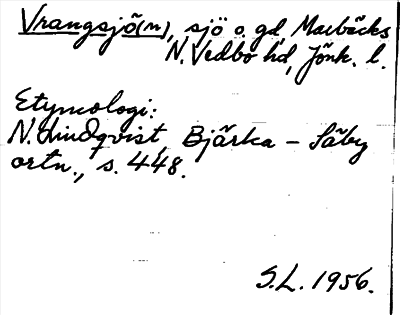 Vrangsjö(n), sjö o. gd, Marbäcks
N. Vedbo hd, Jönk. l.
Etymologi:
N. Lindqvist, Bjärka - Säby
ortn., s. 448.
S.L. 1956.